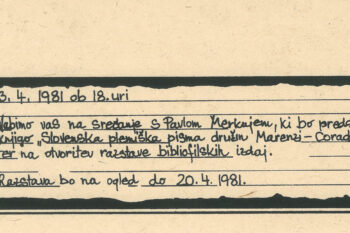 3. 4. 1981 ob 18. uri
Vabimo vas na srečanje s Pavlom Merkujem, ki bo preds
knjigo „Slovenska plemiška pisma družin Marenzi-Corad
ter na otvoritev razstave bibliofilskih izdaj.
Razstava bo na ogled do 20. 4. 1981.